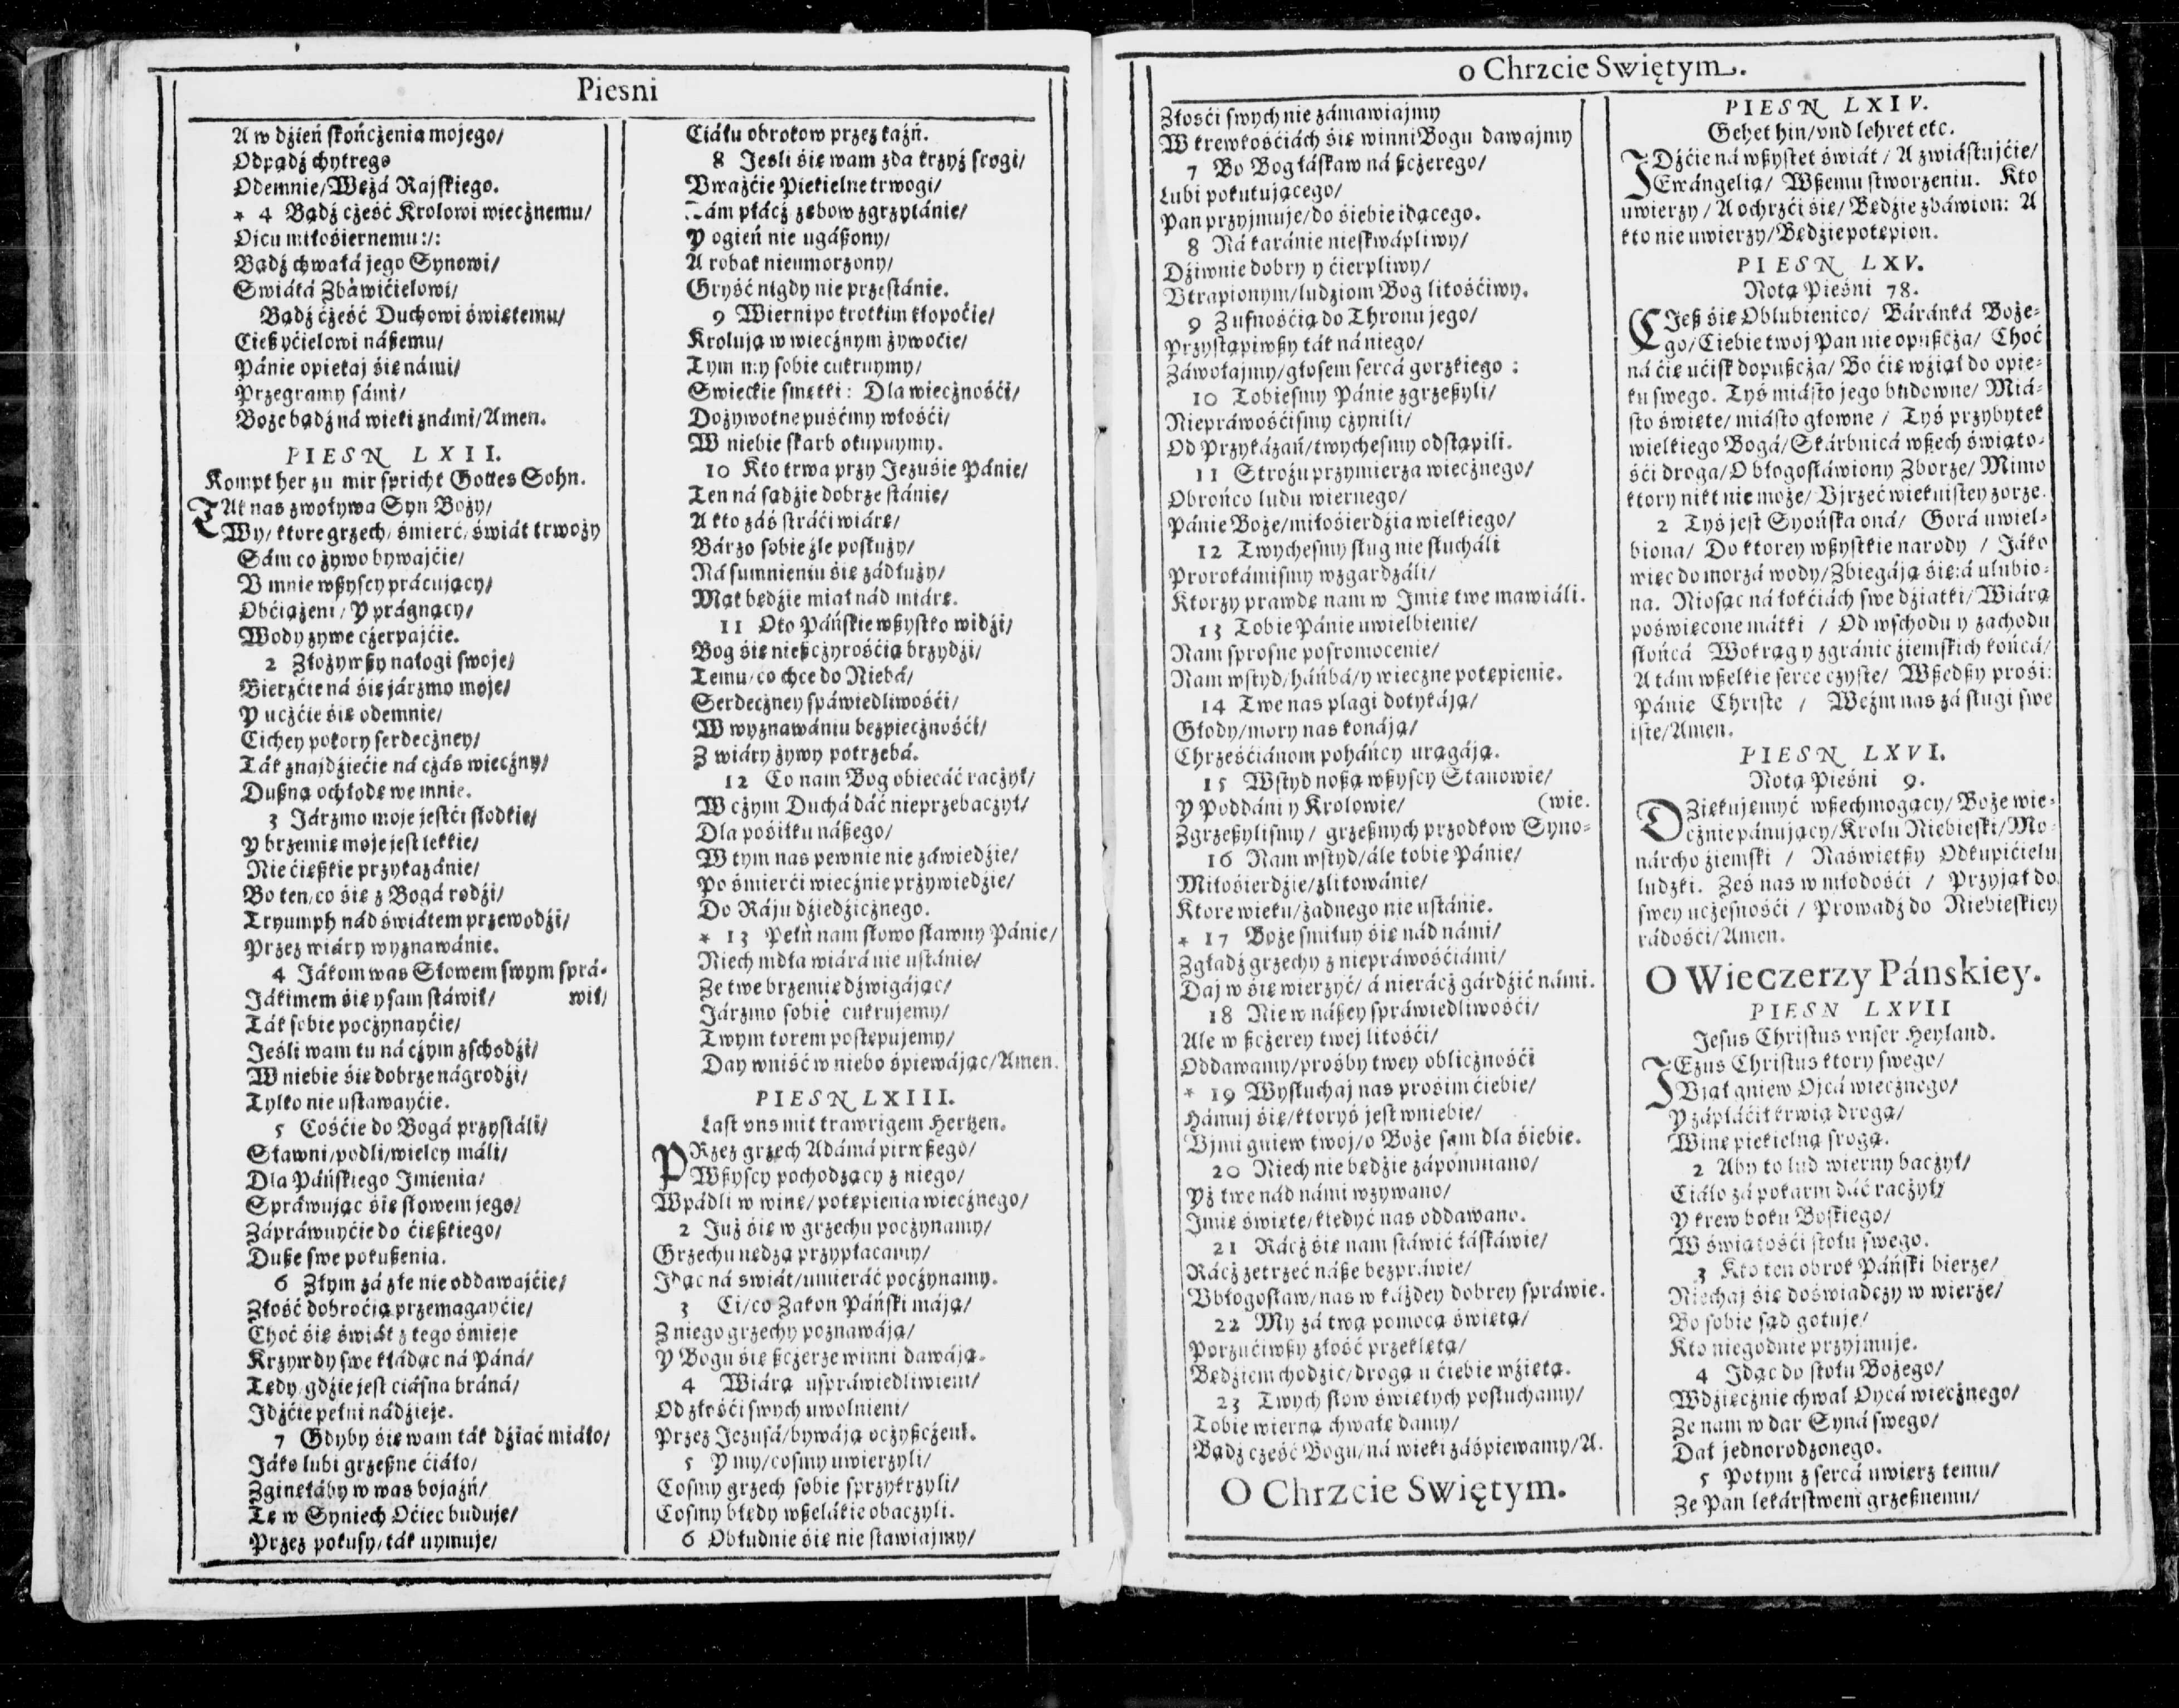 Piesni
A w dźień skończenia mojego/
Odpądź chytrego
Odemnie/Wężá Rajskiego.
* 4 Bądź cżeść Krolowi wiecżnemu/
Ojcu miłosiernemu:/:
Bądź chwałá jego Synowi/
Swiátá Zbáwićielowi/
Bądź ćżeść Duchowi świętemu/
Cießyćielowi náßemu/
Pánie opiekaj się námi/
Przegramy sámi/
Boże bądź ná wieki z námi/Amen.
PIESN LXII.
Kompt her zu mir spricht Gottes Sohn.
TAk nas zwoływa Syn Boży/
Wy/ ktore grzech/ śmierć/ świát trwoży
Sám co żywo bywajćie/
V mnie wßyscy prácujący/
Obćiążeni/ Y prágnący/
Wody żywe cżerpajćie.
2 Złożywßy nałogi swoje/
Bierzćie ná się járzmo moje/
Y ucżćie się odemnie/
Cichey pokory serdecżney/
Ták znajdźiećie ná cżás wiecżny/
Dußną ochłodę we mnie.
3 Járzmo moje jestći słodkie/
Y brzemię moje jest lekkie/
Nie ćięßkie przykazánie/
Bo ten/co się z Bogá rodźi/
Tryumph nád świátem przewodźi/
Przez wiáry wyznawánie.
4 Jákom was Słowem swym sprá-
Jákimem się y sam stáwił/ wił/
Ták sobie pocżynayćie/
Jeśli wam tu ná cżym zschodźi/
W niebie się dobrze nágrodźi/
Tylko nie ustawayćie.
5 Cośćie do Bogá przystáli/
Sławni/podli/wielcy máli/
Dla Páńskiego Jmienia/
Spráwując się słowem jego/
Zápráwuyćie do ćięßkiego/
Duße swe pokußenia.
6 Złym zá złe nie oddawajćie/
Złość dobroćią przemagayćie/
Choć się świát z tego śmieje
Krzywdy swe kłádąc ná Páná/
Tędy gdźie jest ciásna bráná/
Jdźćie pełni nádźieje.
7 Gdyby się wam ták dźiać miáło/
Jáko lubi grzeßne ćiáło/
Zginęłáby w was bojaźń/
Tę w Syniech Oćiec buduje/
Przez pokusy/ ták uymuje/
Ciáłu obrokow przez kaźń.
8 Jesli się wam zda krzyż srogi/
Vważćie Piekielne trwogi/
Tám płácż zębow zgrzytánie/
Y ogień nie ugáßony/
A robak nieumorzony/
Gryść nigdy nie przestánie.
9 Wierni po krotkim kłopoćie/
Krolują w wiecżnym żywoćie/
Tym my sobie cukruymy/
Swieckie smętki: Dla wiecżnośći/
Dożywotne puśćmy włośći/
W niebie skarb okupuymy.
10 Kto trwa przy Jezuśie Pánie/
Ten ná sądźie dobrze stánie/
A kto záś stráći wiárę/
Bárzo sobie źle posłuży/
Ná sumnieniu się zádłuży/
Mąk będźie miał nád miárę.
11 Oko Páńskie wßystko widźi/
Bog się nießcżyrośćią brzydźi/
Temu/co chce do Niebá/
Serdecżney spáwiedliwośći/
W wyznawániu bezpiecżnośći/
Z wiáry żywy potrzebá.
12 Co nam Bog obiecáć racżył/
W cżym Duchá dáć nieprzebacżył/
Dla pośiłku náßego/
W tym nas pewnie nie záwiedźie/
Po śmierći wiecżnie przywiedźie/
Do Ráju dźiedźicżnego.
* 13 Pełń nam słowo sławny Pánie/
Niech mdła wiárá nie ustánie/
Ze twe brzemię dźwigájąc/
Járzmo sobie cukrujemy/
Twym torem postępujemy/
Day wniść w niebo śpiewájąc/Amen.
PIESN LXIII.
Last vns mit trawrigem Hertzen.
PRzez grzech Adámá pirwßego/
Wßyscy pochodzący z niego/
Wpádli w winę/ potępienia wiecżnego/
2 Już się w grzechu pocżynamy/
Grzechu nędzą przypłacamy/
Jdąc ná świát/umieráć pocżynamy.
3 Ci/co Zakon Páński máją/
Z niego grzechy poznawáją/
Y Bogu się ßcżerze winni dawáją.
4 Wiárą uspráwiedliwieni/
Od złośći swych uwolnieni/
Przez Jezusá/bywáją ocżyßcżeni.
5 Y my/cosmy uwierzyli/
Cosmy grzech sobie sprzykrzyli/
Cosmy błędy wßelákie obaczyli.
6 Obłudnie się nie stawiajmy/
o Chrzcie Swiętym.
Złośći swych nie zámawiajmy
W krewkośćiách się winni Bogu dawajmy
7 Bo Bog łáskaw ná ßcżerego/
Lubi pokutującego/
Pan przyjmuje/do śiebie idącego.
8 Ná karánie nieskwápliwy/
Dźiwnie dobry y ćierpliwy/
Vtrapionym/ludziom Bog litośćiwy.
9 Zufnośćią do Thronu jego/
Przystąpiwßy ták ná niego/
Záwołajmy/głosem sercá gorzkiego:
10 Tobiesmy Pánie zgrzeßyli/
Niepráwośćismy cżynili/
Od Przykázań/twychesmy odstąpili.
11 Strożu przymierza wiecżnego/
Obrońco ludu wiernego/
Pánie Boże/miłośierdźia wielkiego/
12 Twychesmy sług nie słucháli
Prorokámismy wzgardzáli/
Ktorzy prawdę nam w Jmię twe mawiáli.
13 Tobie Pánie uwielbienie/
Nam sprosne posromocenie/
Nam wstyd/háńbá/y wieczne potępienie.
14 Twe nas plagi dotykáją/
Głody/mory nas konáją/
Chrześćiánom poháńcy urągáją.
15 Wstyd noßą wßyscy Stanowie/
Y Poddáni y Krolowie/ (wie.
Zgrzeßylismy/ grzeßnych przodkow Syno-
16 Nam wstyd/ále tobie Pánie/
Miłośierdźie/zlitowánie/
Ktore wieku/żadnego nie ustánie.
* 17 Boże smiłuy się nád námi/
Zgładź grzechy z niepráwośćiámi/
Daj w się wierzyć/ á nierácż gárdźić námi.
18 Nie w náßey spráwiedliwośći/
Ale w ßcżerey twej litośći/
Oddawamy/prośby twey oblicżnośći
* 19 Wysłuchaj nas prośim ćiebie/
Hámuj się/ktoryś jest w niebie/
Vjmi gniew twoj/o Boże sam dla śiebie.
20 Niech nie będźie zápomniano/
Yż twe nád námi wzywano/
Jmię święte/kiedyć nas oddawano.
21 Rácż się nam stáwić łáskáwie/
Rácż zetrzeć náße bezpráwie/
Vbłogosław/nas w káżdey dobrey spráwie.
22 My zá twą pomocą świętą/
Porzućiwßy złość przeklętą/
Będźiem chodźić/drogą u ćiebie wźiętą.
23 Twych słow świętych posłuchamy/
Tobie wierną chwałę damy/
Bądź cześć Bogu/ná wieki záśpiewamy/A.
O Chrzcie Swiętym.
PIESN LXIV.
Gehet hin/vnd lehret etc.
JDźćie ná wßystek świát / A zwiástujćie/
Ewángelią/ Wßemu stworzeniu. Kto
uwierzy / A ochrzći się/ Będźie zbáwion: A
kto nie uwierzy/Będźie potępion.
PIESN LXV.
Notą Pieśni 78.
CJeß się Oblubienico/ Báránká Boże-
go/Ciebie twoj Pan nie opußcża/ Choć
ná ćię ućisk dopußcża/ Bo ćię wźiął do opie-
ku swego. Tyś miásto jego budowne/ Miá-
sto święte/ miásto głowne / Tyś przybytek
wielkiego Bogá/Skárbnicá wßech świąto-
śći droga/O błogosłáwiony Zborze/ Mimo
ktory nikt nie może/ Vjrzeć wiekuistey zorze.
2 Tyś jest Syońska oná/ Gorá uwiel-
biona/ Do ktorey wßystkie narody / Jáko
więc do morzá wody/Zbiegáją się:á ulubio-
na. Niosąc ná łokćiách swe dźiatki/ Wiárą
poświęcone mátki / Od wschodu y zachodu
słońcá Wokrąg y zgránic źiemskich końcá/
A tám wßelkie serce czyste/ Wßedßy prośi:
Pánie Christe / Weźm nas zá sługi swe
iste/Amen.
PIESN LXVI.
Notą Pieśni 9.
DZiękujemyć wßechmogący/ Boże wie-
cżnie pánujący/Krolu Niebieski/Mo-
nárcho źiemski / Naświętßy Odkupićielu
ludzki. Żeś nas w młodośći / Przyjął do
swey ucżesnośći / Prowadź do Niebieskiey
rádośći/Amen.
O Wieczerzy Pánskiey.
PIESN LXVII
Jesus Christus vnser Heyland.
JEzus Christus ktory swego/
Vjął gniew Ojcá wiecżnego/
Y zápłáćił krwią drogą/
Winę piekielną srogą.
2 Aby to lud wierny baczył/
Ciáło zá pokarm dáć racżył/
Y krew boku Boskiego/
W świątośći stołu swego.
3 Kto ten obrok Páński bierze/
Niechaj się doświadczy w wierze/
Bo sobie sąd gotuje/
Kto niegodnie przyjmuje.
4 Jdąc do stołu Bożego/
Wdźięcżnie chwal Oycá wiecżnego/
Ze nam w dar Syná swego/
Dał jednorodzonego.
5 Potym z sercá uwierz temu/
Ze Pan lekárstwem grzeßnemu/